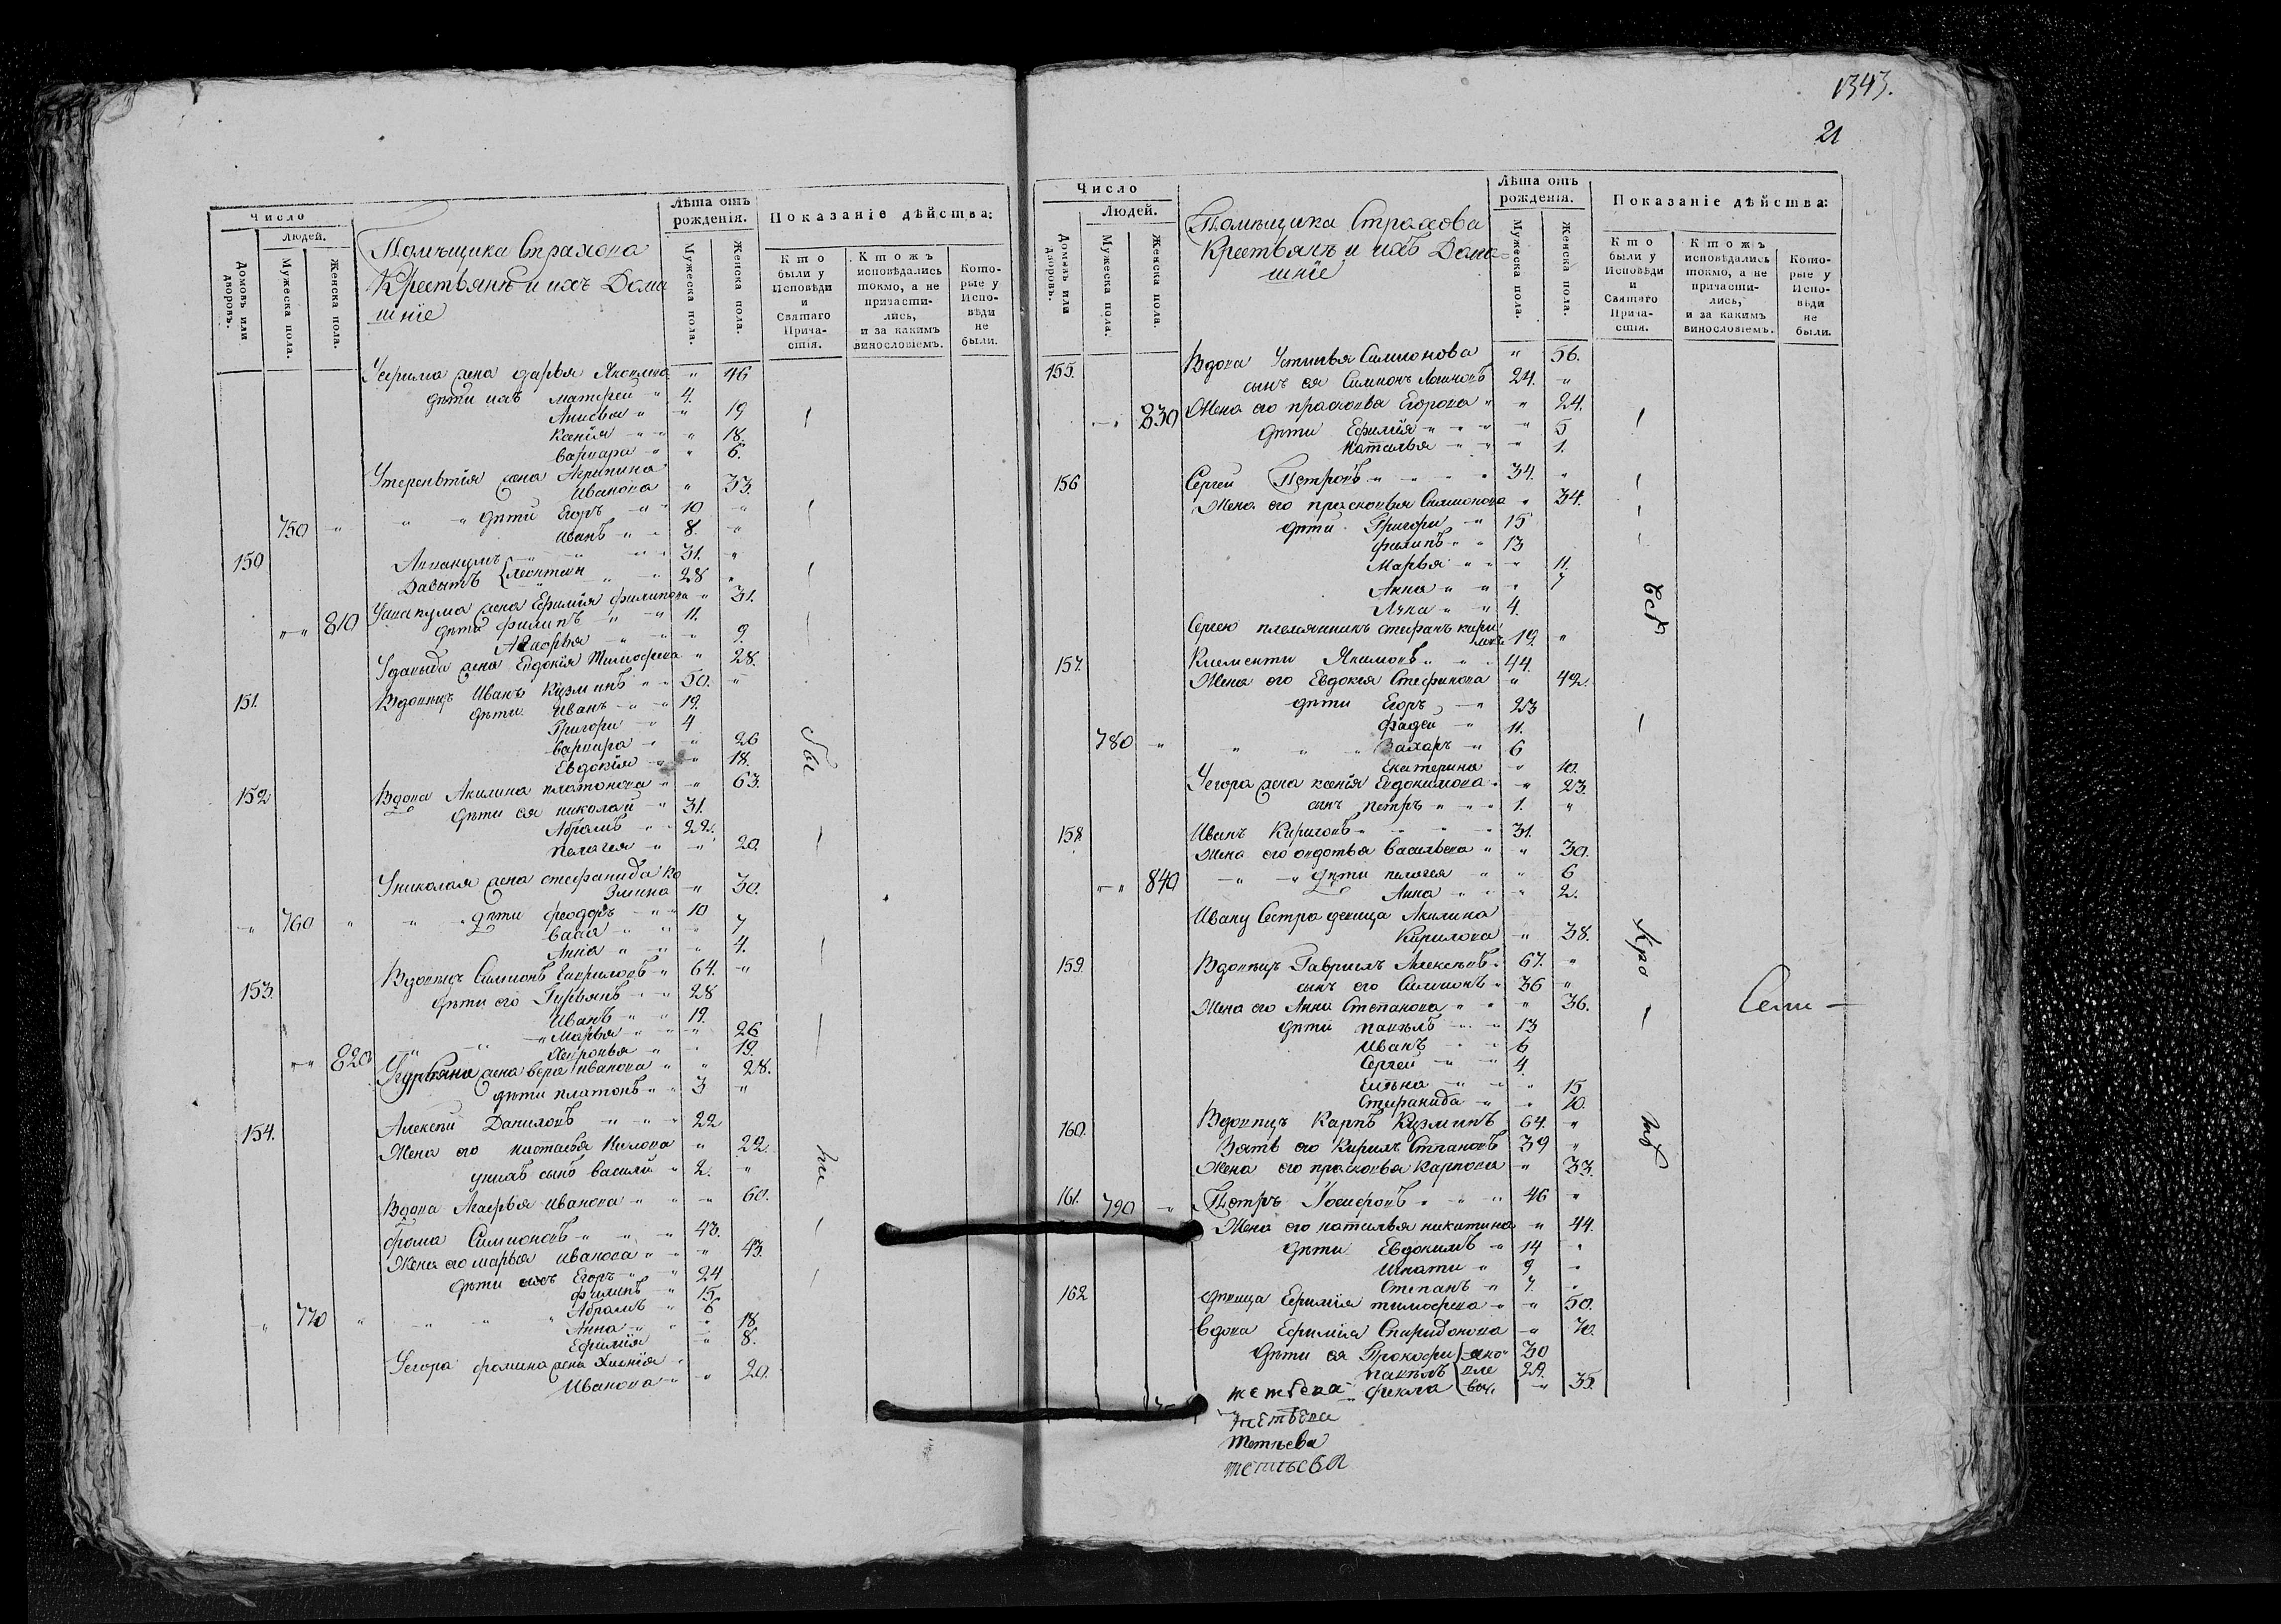 1343.
21
Число
Людей.
Домовъ или дворовъ.
Мужеска пола.
Женска пола.
Помѣщика Страхова
Крестьянѣ и ихъ Дома
шнїе
Лѣта отъ рожденїя.
Мужеска пола.
Женска пола.
Показанїе дѣйства:
Кто были у Исповѣди и Святаго Причастїя.
Ктожъ исповѣдались токмо, а не причастились, и за какимъ винословїемъ.
Которые у Исповѣди не были.
жена дарья " 46
дѣти ихъ матфеи " 4.
Анисья " " 19
Ксенїя " " 18.
варвара " " 6.
жена Агрипина
Иванова " 33.
" " дѣти Егоръ " 10 "
750 " иванъ " 8. "
150 31. "
Давыдъ 28 "
жена Ефимїя филипова " 31.
810 дѣти филипъ " 11.
" 9.
жена Евдокїя Тимофеева " 28.
151. Вдовецъ Иванъ Кузминъ " 50. "
дѣти иванъ " 19.
Григори " 4
варвара " " 26
Евдокїя " " 18.
152 Вдова Акилина платонова " " 63.
дѣти ея николай " 31.
Абрамъ " 22.
пелагея " " 20.
Униколая жена стефанида Ко
змина " 30.
760 " дѣти феодоръ " 10
" 7
Анна " " 4.
153. Вдовецъ Симионъ Гавриловъ " 64. "
дѣти его " 28
Иванъ " 19.
" Марья " " 26
820 " 19.
жена вера иванова " " 28.
дѣти платонъ " 3 "
154. Алексѣй Даниловъ " 22
Жена его " 22.
унихъ сынъ василй " 2. "
Вдова Агафья иванова " " 60.
фома Симионовъ " 43.
Жена его марья иванова " " 43.
дѣти ихъ Егоръ " 24
филипъ " 15.
770 " Абрамъ " 6
Анна " " 18.
Ефимїя " 8.
Уегора фомина жена
Иванова " " 20.
бы
ли
Число
Людей.
Домовъ или дворовъ.
Мужеска пола.
Женска пола.
Помѣщика Страхова
Крестьянѣ и ихъ Дома=
шнїе
Лѣта отъ рожденїя.
Мужеска пола.
Женска пола.
Показанїе дѣйства:
Кто были у Исповѣди и Святаго Причастїя.
Ктожъ исповѣдались токмо, а не причастились, и за какимъ винословїемъ.
Которые у Исповѣди не были.
155. Вдова Устинья Симионова " 56.
сынъ ея Симионъ 24. "
830 Жена его прасковья Егорова " " 24.
дѣти Ефимїя " " 5
Наталья " " 1.
156 Сергей Петровъ " 34. "
Жена его прасковья Симионова " 34.
дѣти Григори " 15
филипъ " 13
Марья " " 11.
Анна " " 7
" 4.
Сергею племянникъ стефанъ кири
ловъ 19. "
157. Клементи Якимовъ " 44.
Жена его Евдокея Стефанова " 42.
дѣти Егоръ " 23
фадеи " 11.
780 " Захаръ " 6
Екатерина " 10.
Уегора жена ксенїя Евдокимова " " 23.
сынъ петръ " 1. "
158. Иванъ Кириловъ " 31.
Жена его овдотья васильева " " 30.
840 " дѣти пелагея " " 6
Анна " " 2.
Ивану Сестра девица Акилина
Кирилова " 38.
159. Вдовецъ Гавриилъ Алексѣевъ " 67. "
сынъ его Симионъ " 36 "
Жена его Анна Степанова " " 36.
дѣти павелъ " 13
Иванъ " 6
Сергей " 4.
Елена " " 15
Стефанида " " 10.
160. Вдовецъ Карпъ Кузминъ 64. "
Зять его Кирилъ 39 "
Жена его прасковья Карпова " 33.
161. 790 " Петръ Иосифовъ " 46 "
Жена его наталья никитина " 44.
дѣти Евдокимъ " 14 "
Игнати " 9 "
Степанъ " 7. "
162 дѣвица Ефимїя тимофеева " " 50.
вдова Ефимїя Спиридонова " 70.
дѣти ея Прокофи 30
павелъ 29.
фекла " 35.
всѣ
Кро
мѣ
Сели